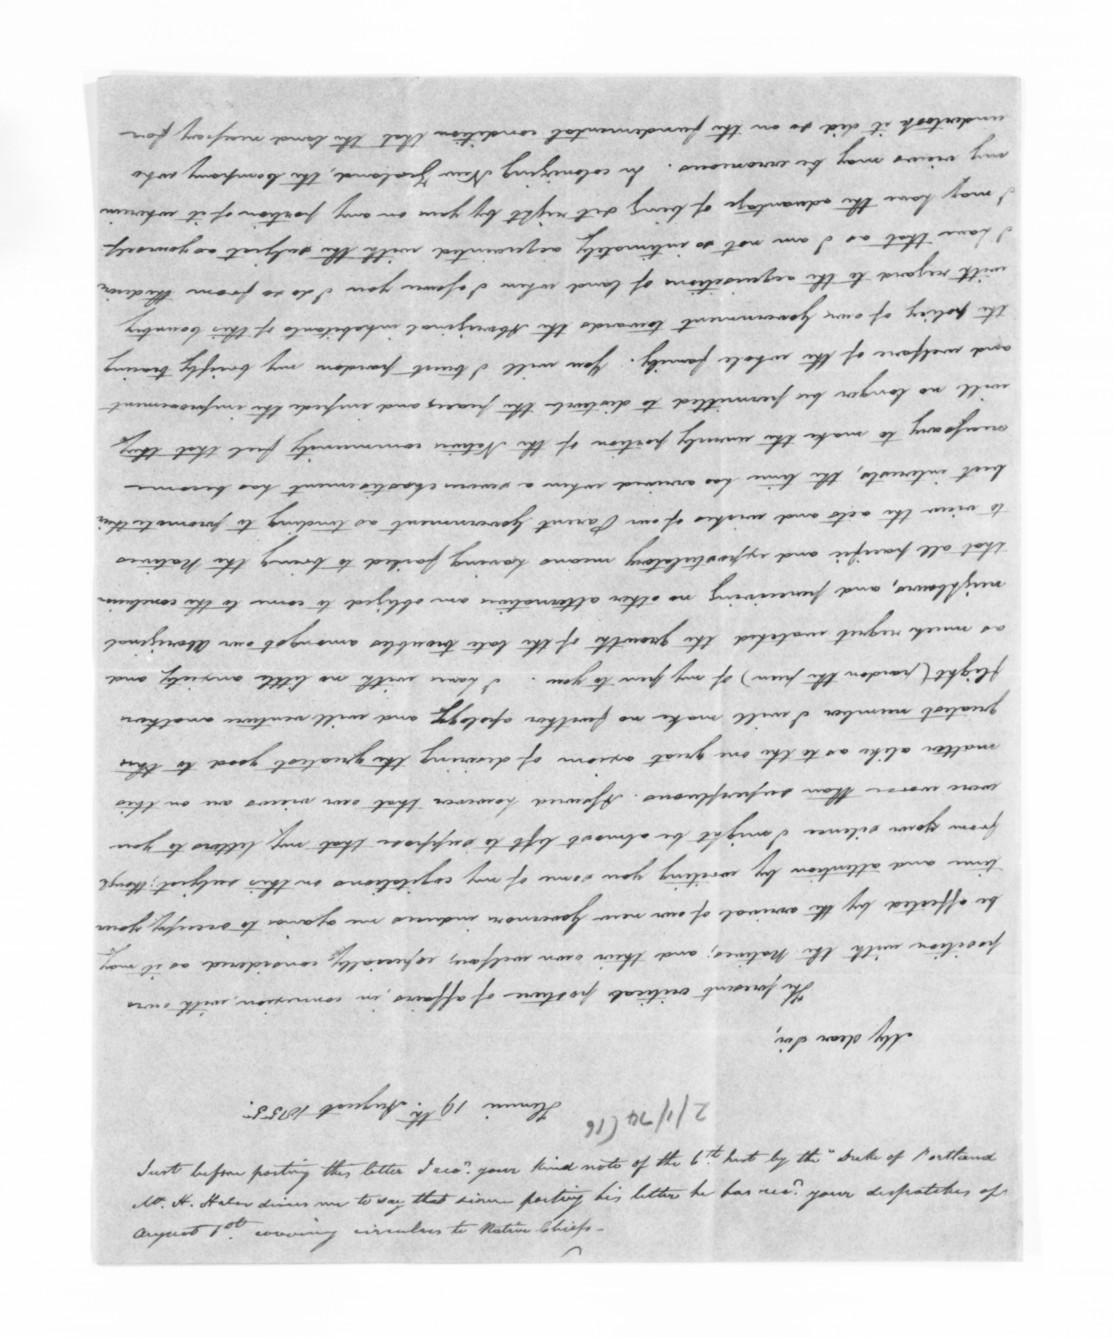 Henui 19th August 1855.
My dear Sir,
The present critical posture of affairs, in connexion, with ours
position with the Natives; and their own welfare, especially considered as it may
be affected by the arrival of our new Governor induces me again to occupy your
time and attention by writing you some of my cogitations on this subject; though
from your silence I might be almost left to suppose that my letters to you
were worse than superfluous. Assured however that our views are on this
matter alike as to the one great axiom of desiring the greatest good to the
greatest number I will make no further apology and will venture another
flight (pardon the pun) of my pen to you. I have with no little anxiety and
as much regret watched the growth of the late troubles amongst our Aboriginal
neighbours, and perceiving no other alternative am obliged to come to the conclusion
that all pacific and expostulatory means having failed to bring the Natives
to view the acts and wishes of our Parent Government as tending to promote their
best interests, the time has arrived when a severe chastisement has become
necessary to make the unruly portion of the Native community feel that they
will no longer be permitted to disturb the peace, and impede the improvement
and welfare of the whole family. You will I trust pardon my briefly tracing
the policy of our Government towards the Aboriginal inhabitants of this Country
with regard to the acquisitions of land when I assure you I do so from the desire
I have that as I am not so intimately acquainted with the subject as yourself
I may have the advantage of being set right by you on any portion of it wherein
my views may be erroneous. In colonizing New Zealand, the Company who
undertook it did so on the fundamental condition that the land necessary for
2/1/74 (16
Just before posting this letter I recd. your kind note of the 9th inst by the "Duke of Portland
Mr. H. Halse desires me to say that since posting his letter he has recd. your despatches of
August 1st covering circulars to Native Chiefs -